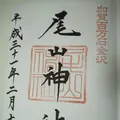 加賀百万石金沢
尾山神社
平成三十一年二月